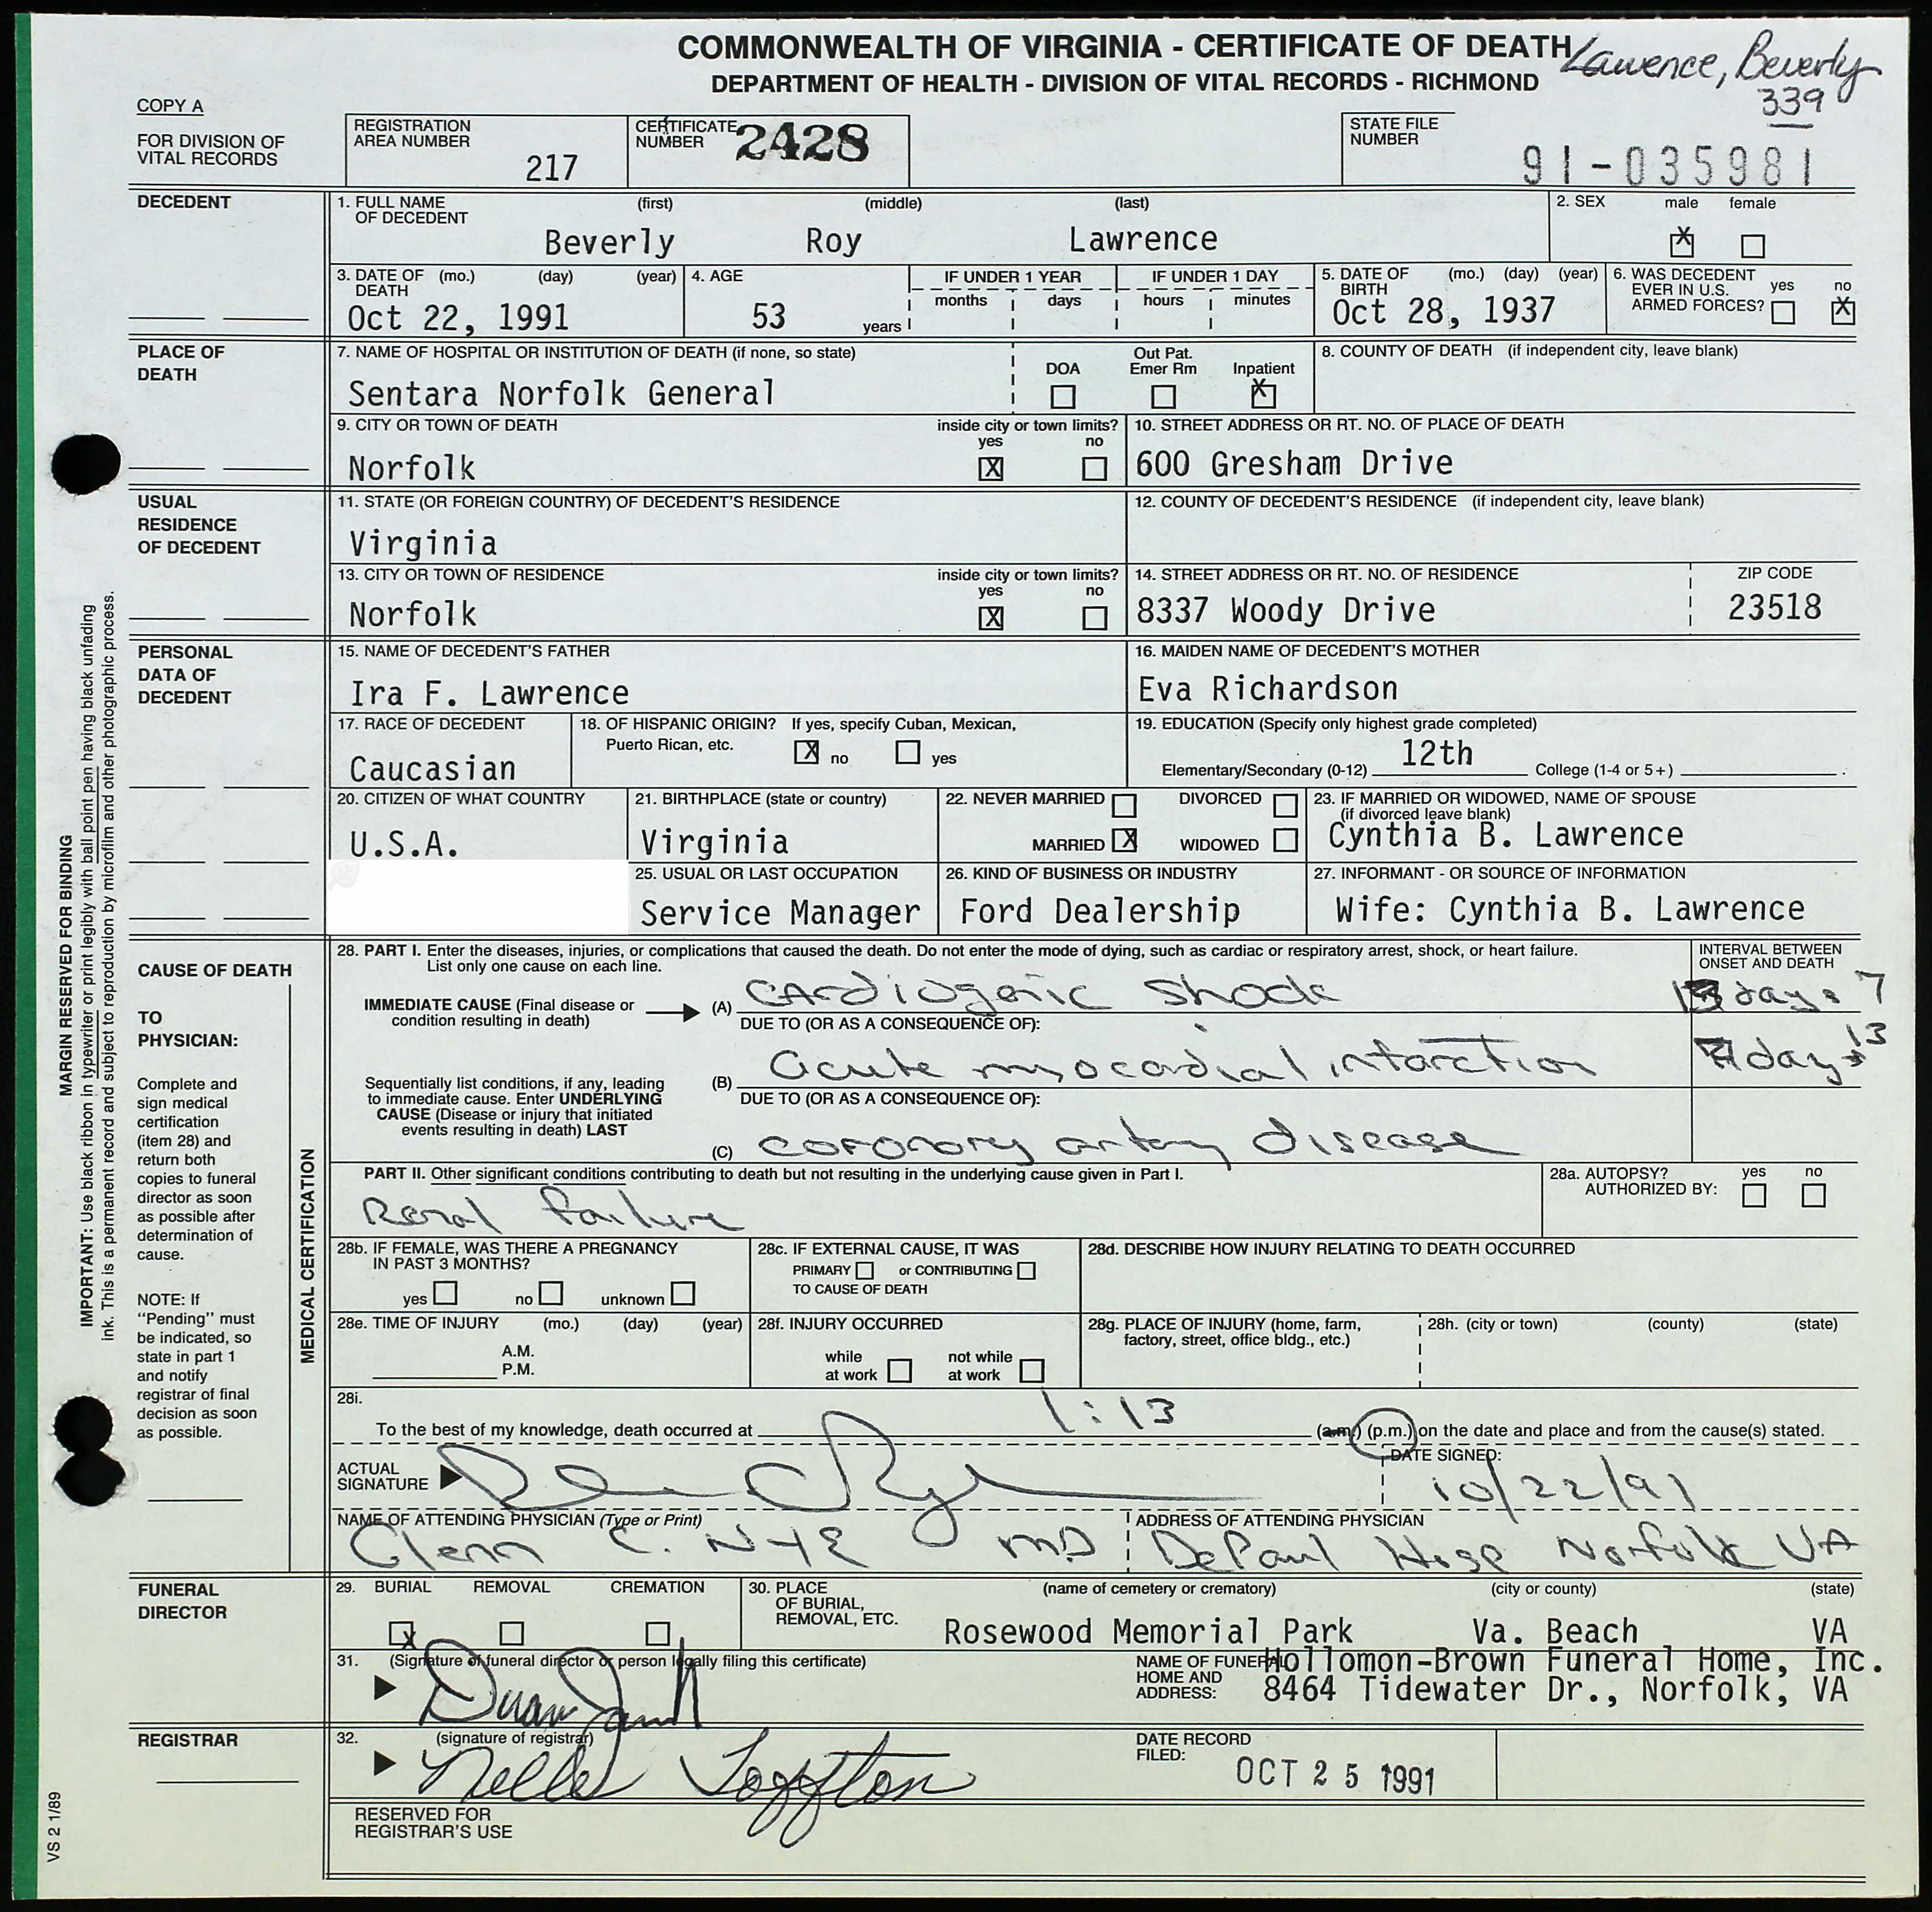 COMMONWEALTH OF VIRGINIA - CERTIFICATE OF DEATH
Lawrence, Beverly
DEPARTMENT OF HEALTH - DIVISION OF VITAL RECORDS - RICHMOND
339
COPY A
FOR DIVISION OF
VITAL RECORDS
REGISTRATION
AREA NUMBER
217
CERTIFICATE
NUMBER
2428
STATE FILE
NUMBER
91-035981
DECEDENT
1. FULL NAME
OF DECEDENT
(first) (middle) (last)
Beverly Roy Lawrence
2. SEX male female
X
3. DATE OF (mo.) (day) (year)
DEATH
Oct 22, 1991
4. AGE
53 years
IF UNDER 1 YEAR
months days
IF UNDER 1 DAY
hours minutes
5. DATE OF (mo.) (day) (year)
BIRTH
Oct 28, 1937
6. WAS DECEDENT
EVER IN U.S.
ARMED FORCES? yes no
X
PLACE OF
DEATH
7. NAME OF HOSPITAL OR INSTITUTION OF DEATH (if none, so state)
Sentara Norfolk General
DOA
Out Pat.
Emer Rm
Inpatient
X
8. COUNTY OF DEATH (if independent city, leave blank)
9. CITY OR TOWN OF DEATH
Norfolk
inside city or town limits?
yes no
X
10. STREET ADDRESS OR RT. NO. OF PLACE OF DEATH
600 Gresham Drive
USUAL
RESIDENCE
OF DECEDENT
11. STATE (OR FOREIGN COUNTRY) OF DECEDENT'S RESIDENCE
Virginia
12. COUNTY OF DECEDENT'S RESIDENCE (if independent city, leave blank)
13. CITY OR TOWN OF RESIDENCE
Norfolk
inside city or town limits?
yes no
X
14. STREET ADDRESS OR RT. NO. OF RESIDENCE
8337 Woody Drive
ZIP CODE
23518
PERSONAL
DATA OF
DECEDENT
15. NAME OF DECEDENT'S FATHER
Ira F. Lawrence
16. MAIDEN NAME OF DECEDENT'S MOTHER
Eva Richardson
17. RACE OF DECEDENT
Caucasian
18. OF HISPANIC ORIGIN? If yes, specify Cuban, Mexican,
Puerto Rican, etc. X no yes
19. EDUCATION (Specify only highest grade completed)
12th
Elementary/Secondary (0-12) College (1-4 or 5+)
20. CITIZEN OF WHAT COUNTRY
U.S.A.
21. BIRTHPLACE (state or country)
Virginia
22. NEVER MARRIED DIVORCED
MARRIED X WIDOWED
23. IF MARRIED OR WIDOWED, NAME OF SPOUSE
(if divorced leave blank)
Cynthia B. Lawrence
25. USUAL OR LAST OCCUPATION
Service Manager
26. KIND OF BUSINESS OR INDUSTRY
Ford Dealership
27. INFORMANT - OR SOURCE OF INFORMATION
Wife: Cynthia B. Lawrence
CAUSE OF DEATH
TO
PHYSICIAN:
Complete and
sign medical
certification
(item 28) and
return both
copies to funeral
director as soon
as possible after
determination of
cause.
NOTE: If
"Pending" must
be indicated, so
state in part 1
and notify
registrar of final
decision as soon
as possible.
MEDICAL CERTIFICATION
28. PART I. Enter the diseases, injuries, or complications that caused the death. Do not enter the mode of dying, such as cardiac or respiratory arrest, shock, or heart failure.
List only one cause on each line.
INTERVAL BETWEEN
ONSET AND DEATH
IMMEDIATE CAUSE (Final disease or
condition resulting in death)
(A) Cardiogenic Shock
days 7
DUE TO (OR AS A CONSEQUENCE OF):
Sequentially list conditions, if any, leading
to immediate cause. Enter UNDERLYING
CAUSE (Disease or injury that initiated
events resulting in death) LAST
(B) acute myocardial infarction
days 13
DUE TO (OR AS A CONSEQUENCE OF):
(C) coronary artery disease
PART II. Other significant conditions contributing to death but not resulting in the underlying cause given in Part I.
Renal failure
28a. AUTOPSY? yes no
AUTHORIZED BY:
28b. IF FEMALE, WAS THERE A PREGNANCY
IN PAST 3 MONTHS?
yes no unknown
28c. IF EXTERNAL CAUSE, IT WAS
PRIMARY or CONTRIBUTING
TO CAUSE OF DEATH
28d. DESCRIBE HOW INJURY RELATING TO DEATH OCCURRED
28e. TIME OF INJURY (mo.) (day) (year)
A.M.
P.M.
28f. INJURY OCCURRED
while
at work
not while
at work
28g. PLACE OF INJURY (home, farm,
factory, street, office bldg., etc.)
28h. (city or town) (county) (state)
28i.
To the best of my knowledge, death occurred at 1:13 (a.m.) (p.m.) on the date and place and from the cause(s) stated.
ACTUAL
SIGNATURE
DATE SIGNED:
10/22/91
NAME OF ATTENDING PHYSICIAN (Type or Print)
Glenn C. NYE MD
ADDRESS OF ATTENDING PHYSICIAN
DePaul Hosp Norfolk VA
FUNERAL
DIRECTOR
29. BURIAL REMOVAL CREMATION
X
30. PLACE
OF BURIAL,
REMOVAL, ETC.
(name of cemetery or crematory) (city or county) (state)
Rosewood Memorial Park Va. Beach VA
31. (Signature of funeral director or person legally filing this certificate)
NAME OF FUNERAL
HOME AND
ADDRESS:
Hollomon-Brown Funeral Home, Inc.
8464 Tidewater Dr., Norfolk, VA
REGISTRAR
32. (signature of registrar)
DATE RECORD
FILED:
OCT 25 1991
RESERVED FOR
REGISTRAR'S USE
MARGIN RESERVED FOR BINDING
IMPORTANT: Use black ribbon in typewriter or print legibly with ball point pen having black unfading
ink. This is a permanent record and subject to reproduction by microfilm and other photographic process.
VS 2 1/89